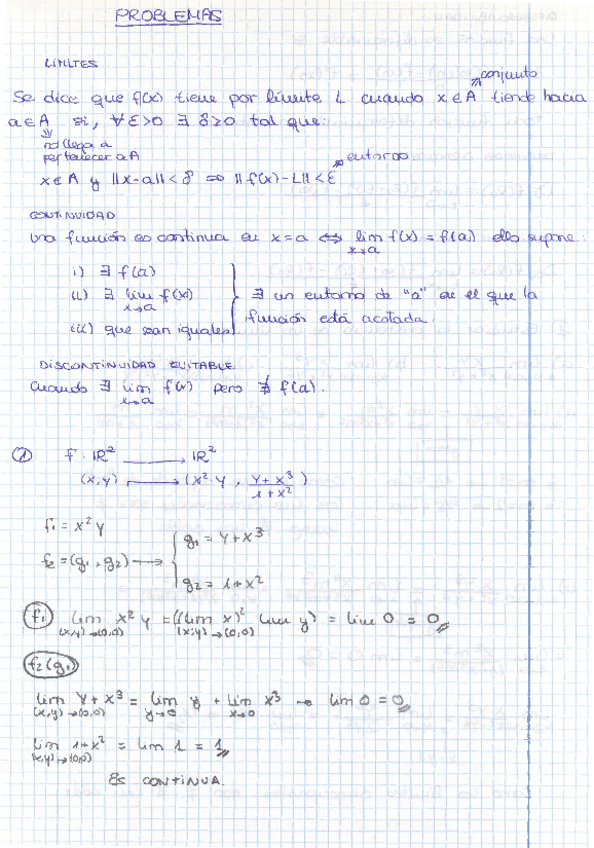 PROBLEMAS
LÍMITES
conjunto
Se dice que f(x) tiene por límite L cuando x∈A tiende hacia
a∈A si, ∀ε>0 ∃ δ≥0 tal que:
no llega a
pertenecer a A
entorno
x∈A y ||x-a||<δ ⇒ ||f(x)-L||<ε
CONTINUIDAD
Una función es continua en x=a ⇔ lim f(x) = f(a) ello supone:
x→a
i) ∃ f(a)
ii) ∃ lim f(x)
x→a
iii) que sean iguales
∃ un entorno de "a" en el que la
función está acotada.
DISCONTINUIDAD EVITABLE
Cuando ∃ lim f(x) pero ∄ f(a).
x→a
① f: ℝ² → ℝ²
(x,y) → (x²·y, (y+x³)/(1+x²))
f₁ = x²y
f₂ = (g₁, g₂) → { g₁ = y+x³
g₂ = 1+x²
f₁ lim x²y = ((lim x)² lim y) = lim 0 = 0
(x,y)→(0,0) (x,y)→(0,0)
f₂(g₁)
lim y+x³ = lim y + lim x³ → lim 0 = 0
(x,y)→(0,0) y→0 x→0
lim 1+x² = lim 1 = 1
(x,y)→(0,0)
ES CONTINUA.